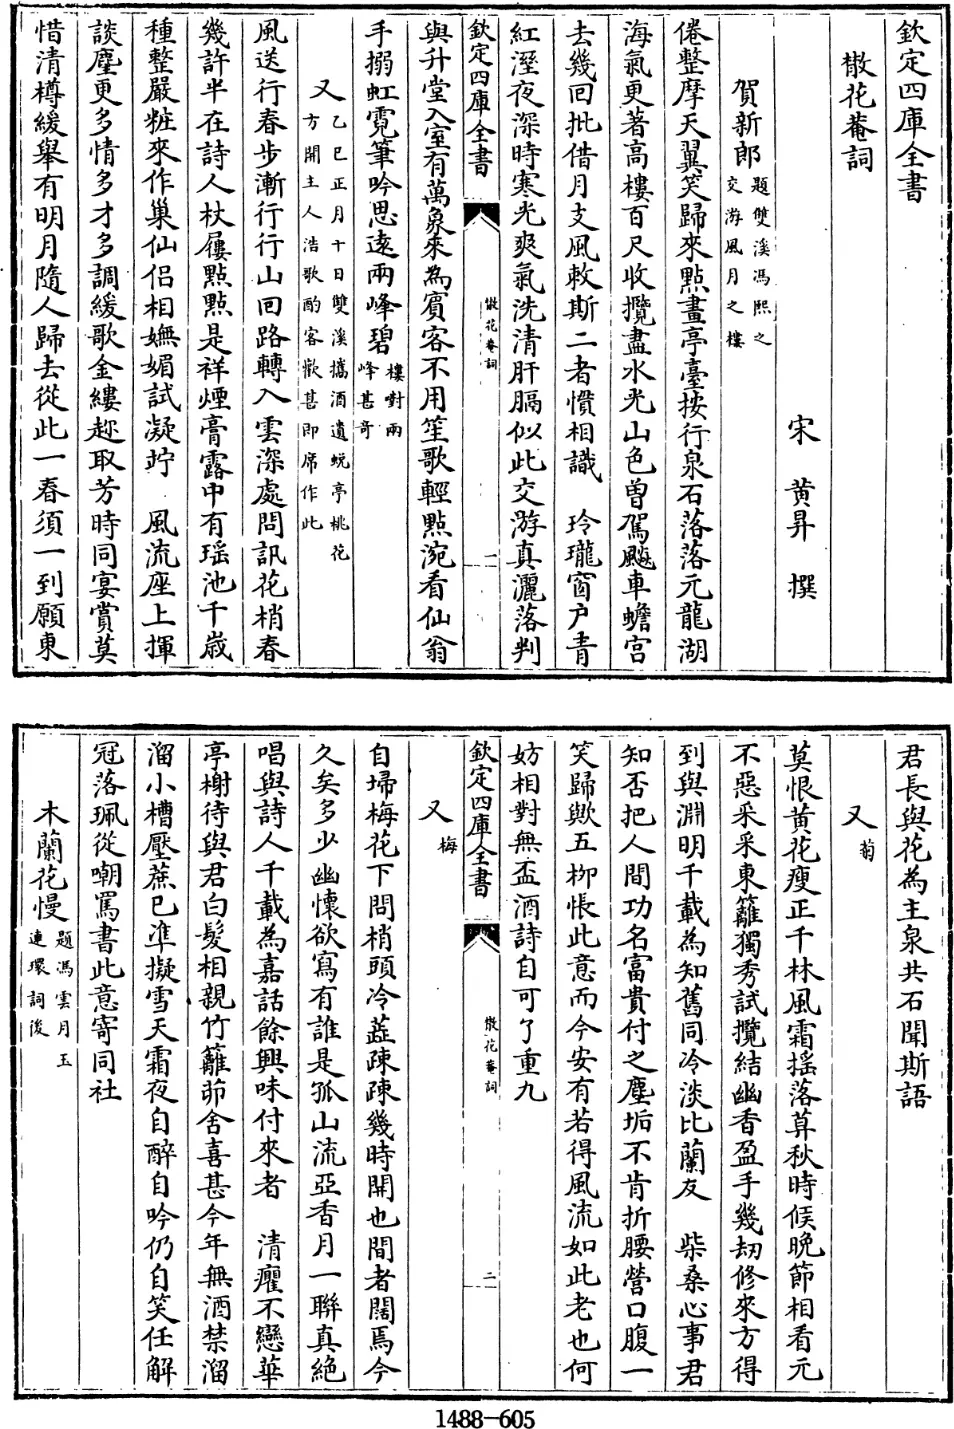 欽定四庫全書
散花菴詞
宋　黄昇　撰
賀新郎 題雙溪馮熙之
交游風月之樓
倦整摩天翼笑歸來點畫亭臺按行泉石落落元龍湖
海氣更著高樓百尺收攬盡水光山色曽駕飈車蟾宫
去幾回批借月支風敕斯二者慣相識　玲瓏窗户青
紅溼夜深時寒光爽氣洗清肝膈似此交游真灑落判
欽定四庫全書
散花菴詞
一
與升堂入室有萬象來為賓客不用笙歌輕點涴看仙翁
手搦虹霓筆吟思遠兩峰碧 樓對兩
峰甚奇
又 乙巳正月十日雙溪攜酒遺蜕亭桃花
方開主人浩歌酌客歡甚即席作此
風送行春步漸行行山回路轉入雲深處問訊花梢春
幾許半在詩人杖屨點點是祥煙膏露中有瑶池千歳
種整嚴粧來作巢仙侣相嫵媚試凝竚　風流座上揮
談麈更多情多才多調緩歌金縷趂取芳時同宴賞莫
惜清樽緩舉有明月隨人歸去從此一春須一到願東
君長與花為主泉共石聞斯語
又 菊
莫恨黄花瘦正千林風霜揺落算秋時候晩節相看元
不惡采采東籬獨秀試攬結幽香盈手幾刼修來方得
到與淵明千載為知舊同冷淡比蘭友　柴桑心事君
知否把人間功名富貴付之塵垢不肯折腰營口腹一
笑歸歟五柳悵此意而今安有若得風流如此老也何
妨相對無盃酒詩自可了重九
欽定四庫全書
散花菴詞
二
又 梅
自埽梅花下問梢頭冷蕋疎疎幾時開也間者闊焉今
久矣多少幽懷欲寫有誰是孤山流亞香月一聯真絶
唱與詩人千載為嘉話餘興味付來者　清癯不戀華
亭榭待與君白髮相親竹籬茆舍喜甚今年無酒禁溜
溜小槽壓蔗已凖擬雪天霜夜自醉自吟仍自笑任解
冠落珮從嘲罵書此意寄同社
木蘭花慢 題馮雲月玉
連環詞後
1488-605